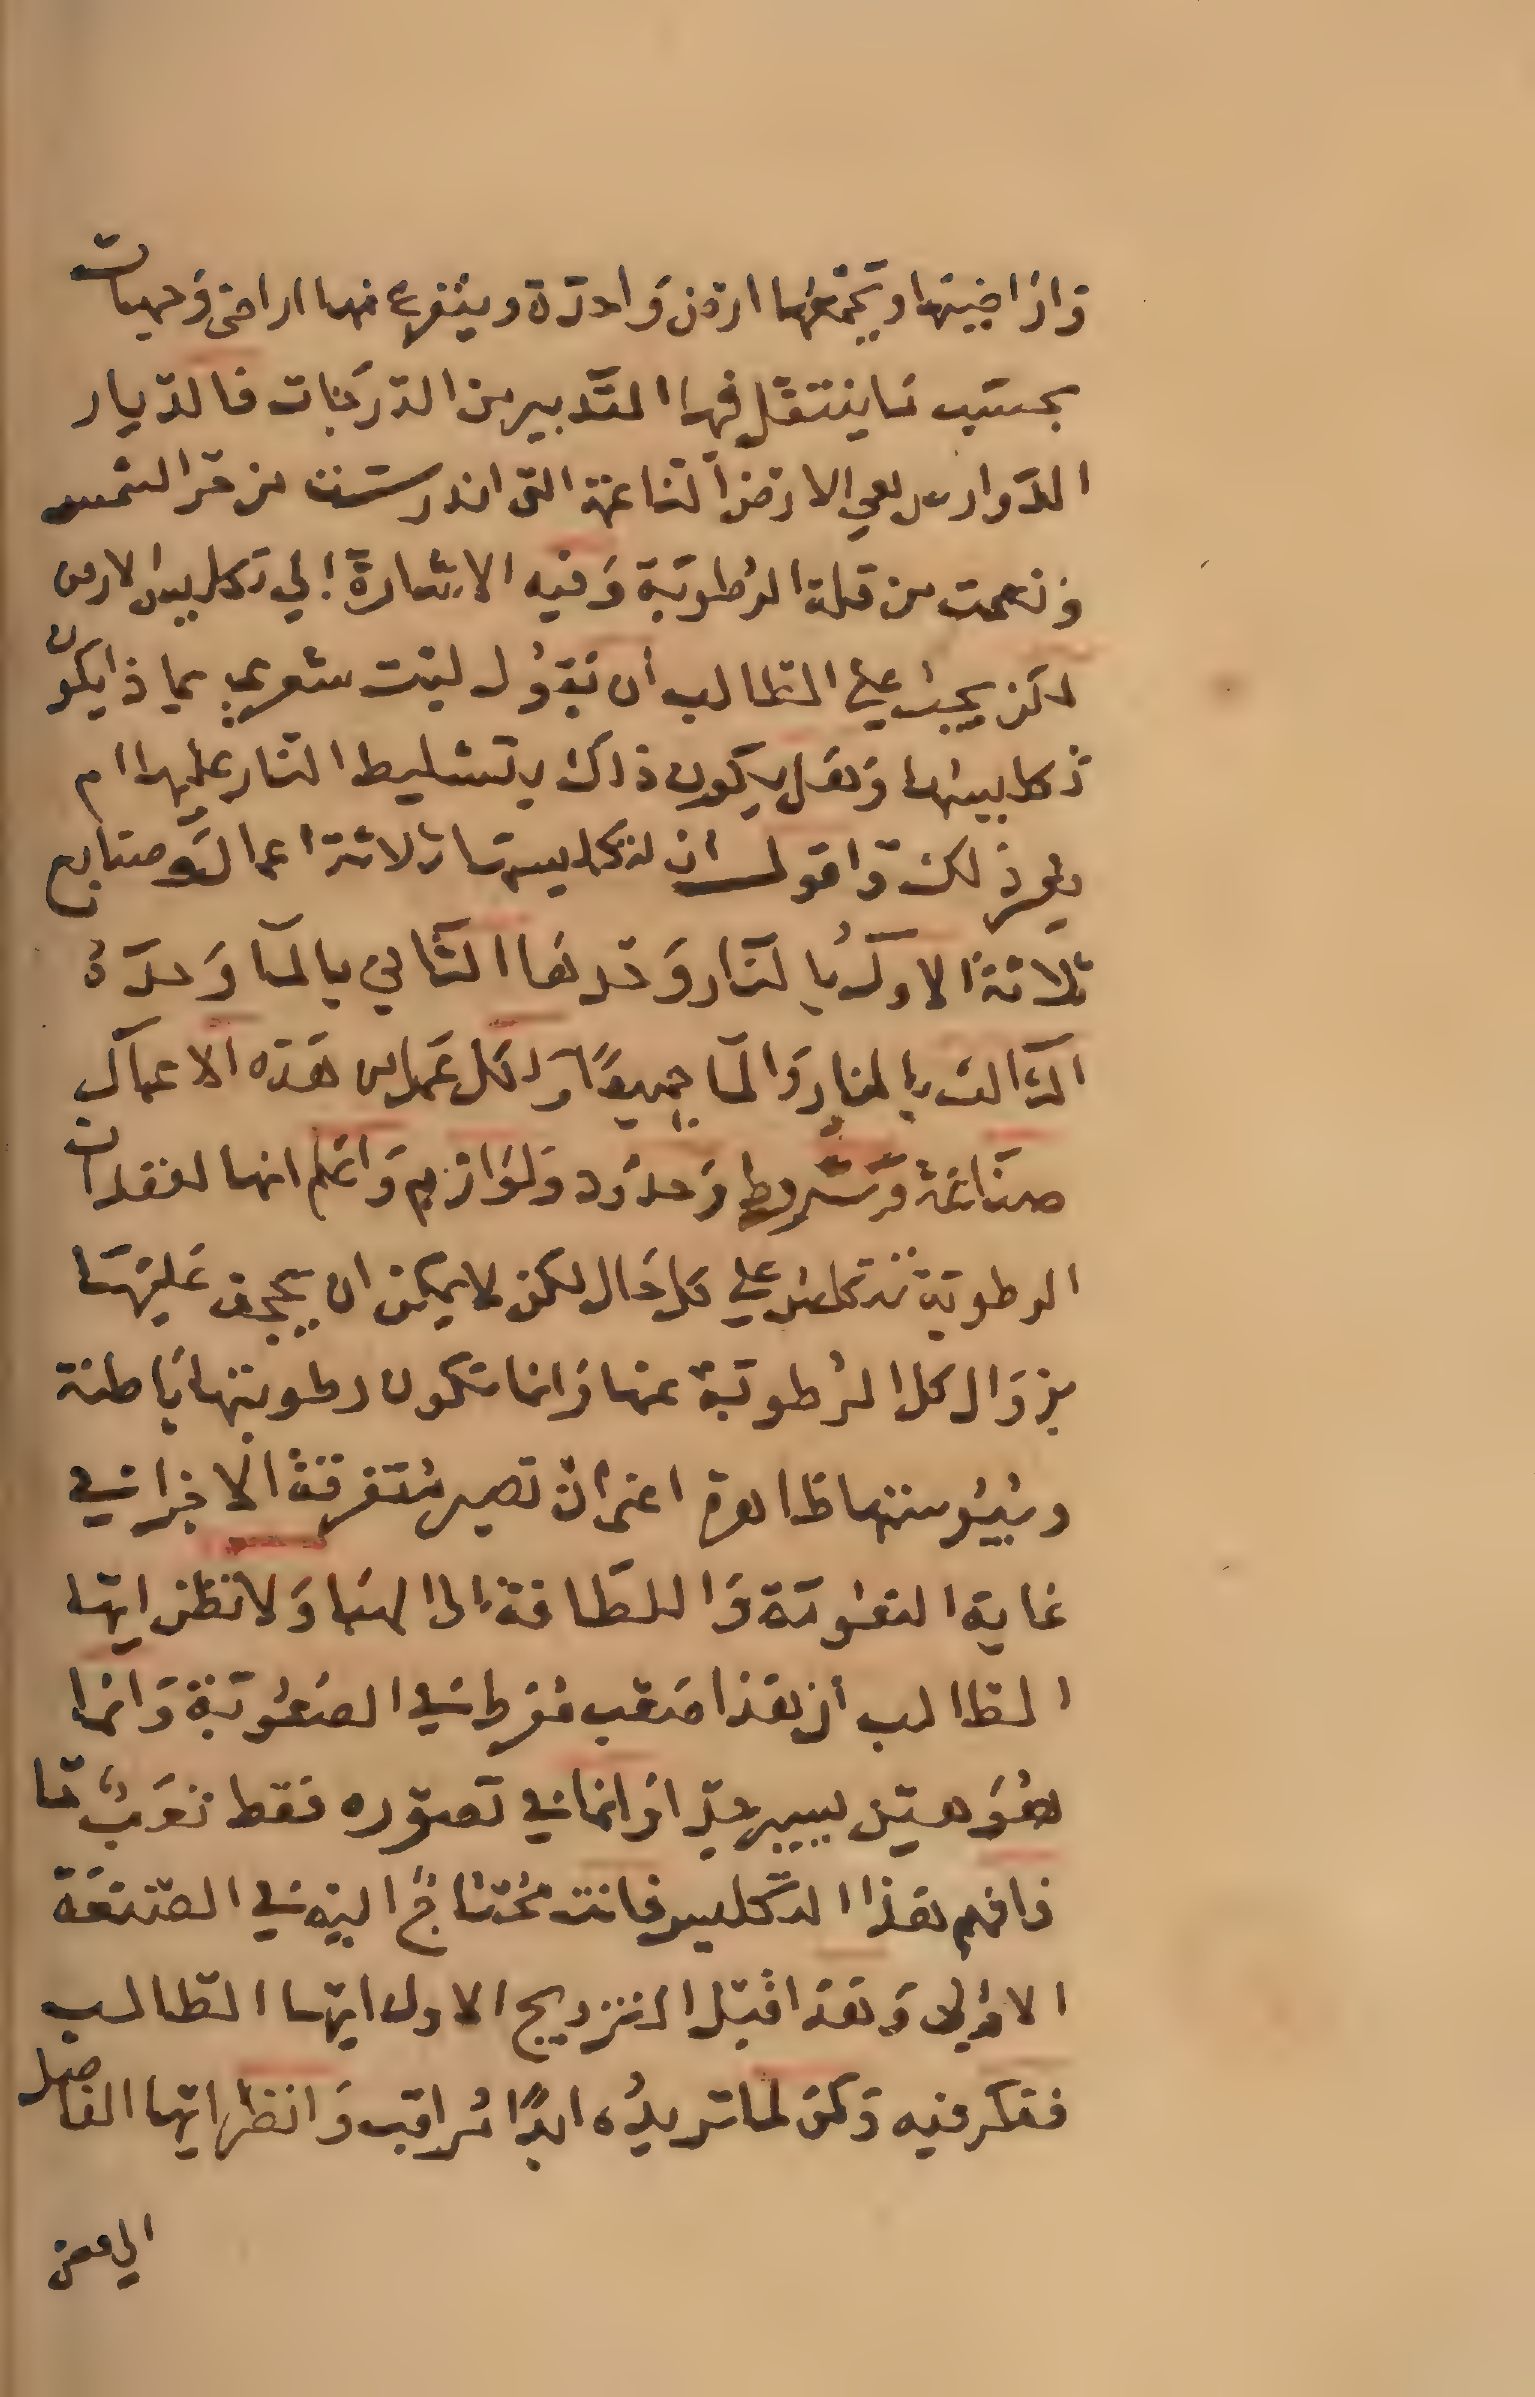 واراضيها ويجمعها ارض واحدة ويتفرع منها اراضي وحهات
بحسب ما ينتقل فيها التدبير من الدرجات فالديار
الدوارس هي الارض الناعمة التي اندرست من حر الشمس
ونعمت من قلة الرطوبة وفيه الاشارة الي تكليس الارض
لكن يجب علي الطالب ان يقول ليت شعري بما ذا يكون
تكليسها وهل يكون ذاك بتسليط النار عليها ام
بغير ذلك واقول ان لتكليسها ثلاثة اعمال وصنايع
ثلاثة الاول بالنار وحدها الثاني بالما وحده
الثالث بالنار والما جميعًا ولكل عمل من هذه الاعمال
صناعة وشروط وحدود ولوازم واعلم انها لفقدان
الرطوبة تتكلس علي كل حال لكن لا يمكن ان يجحف عليها
بزوال كل الرطوبة عنها وانما تكون رطوبتها باطنة
ويبوستها ظاهرة اعني ان تصير متفرقة الاجزا في
غاية النعومة واللطافة الي الهبا ولا تظن ايها
الطالب ان هذا صعب مفرط في الصعوبة وانما
هو هين يسير جدا وانما في تصوره فقط تعبٌ ما
فافهم هذا التكليس فانت محتاجٌ اليه في الصنعة
الاولي وهذا قبل التزويج الاول ايها الطالب
ففكر فيه وكن لما تريده ابدًا مراقب وانظر ايها الفاضل
الي معن